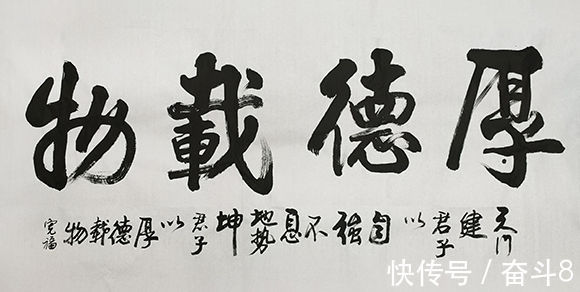 厚德載物
天行建君子以自強不息地勢坤君子以厚德載物
快传号 / 奋斗8